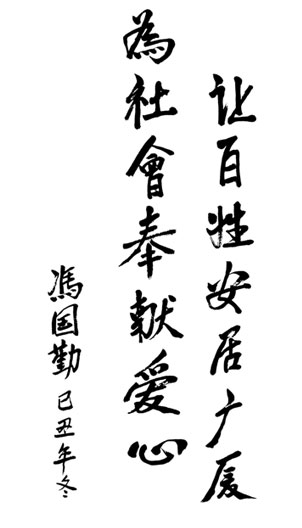 让百姓安居广厦
為社會奉献爱心
馮国勤 己丑年冬